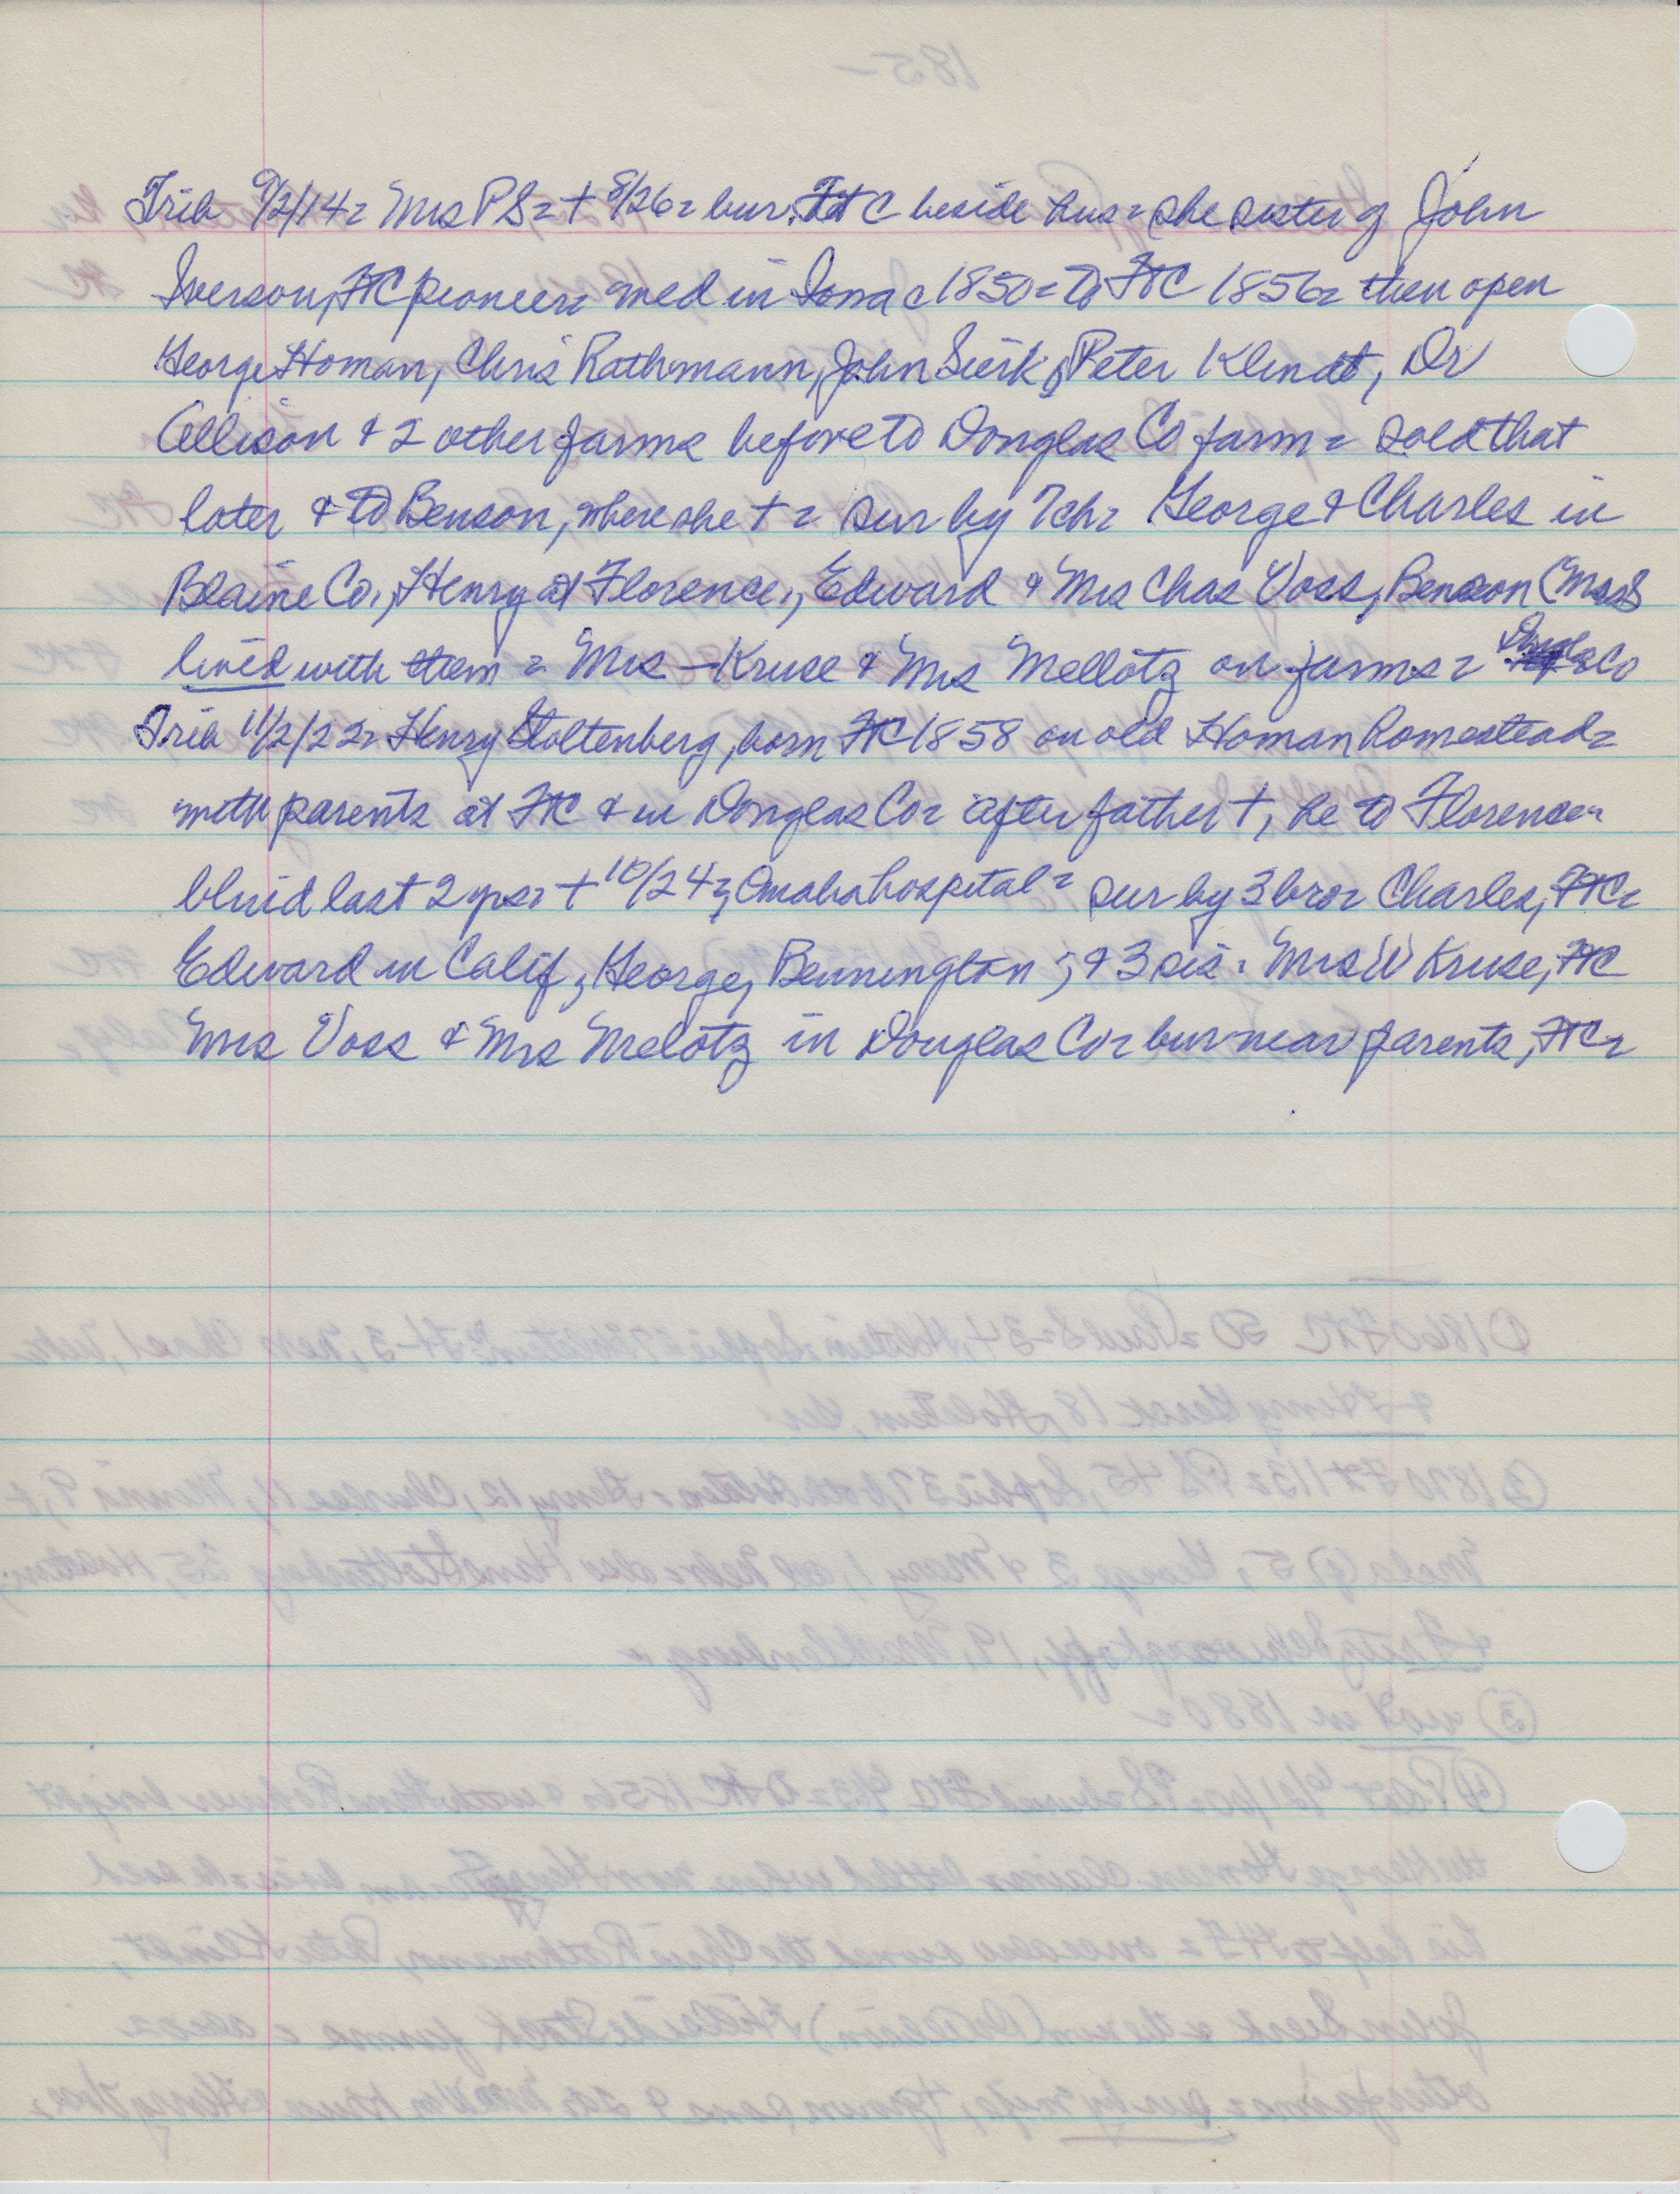 Trib 9/2/14= Mrs PS= + 8/26= bur. Ft C beside hus= she sister of John
Iverson, FtC pioneer= med in Iowa c 1850= To FtC 1856= then open
George Homan, Chris Rathmann, John Sierk, Peter Klindt, Dr
Allison & 2 other farms before to Douglas Co farm= sold that
later & to Benson, where she += sur by 7ch= George & Charles in
Blaine Co., Henry at Florence, Edward & Mrs Chas Voss, Benson (Mrs S
lived with them = Mrs — Kruse & Mrs Mellotz on farms= Douglas Co
Trib 11/2/22= Henry Stoltenberg, born FtC 1858 on old Homan homestead=
with parents at FtC & in Douglas Co= after father +, he to Florence=
blind last 2 yrs= + 10/24=, Omaha hospital= sur by 3 bro= Charles, FtC=
Edward in Calif, George, Bennington; & 3 sis= Mrs W Kruse, FtC
Mrs Voss & Mrs Melotz in Douglas Co= bur near parents, FtC=